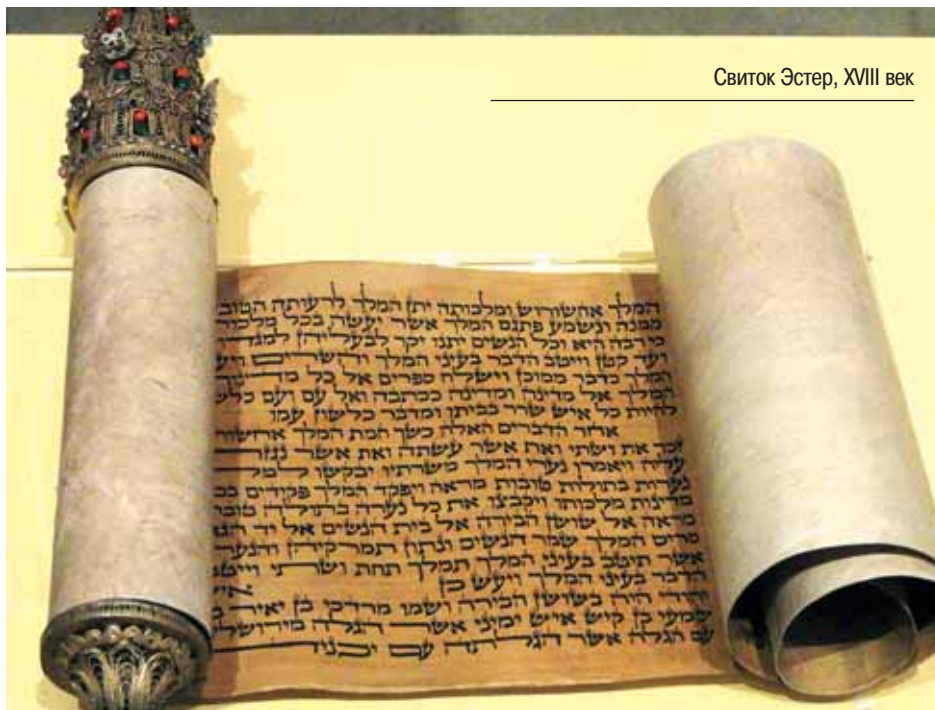 Свиток Эстер, XVIII век
המלך אחשורוש ומלכותה יתן המלך לרעותה הטוב
ממנה ונשמע פתגם המלך אשר יעשה בכל מלכות
כי רבה היא וכל הנשים יתנו יקר לבעליהן למגדו
ועד קטן וייטב הדבר בעיני המלך והשרים ויעש
המלך כדבר ממוכן וישלח ספרים אל כל מדינות
המלך אל מדינה ומדינה ככתבה ואל עם ועם כלש
להיות כל איש שרר בביתו ומדבר כלשון עמו
אחר הדברים האלה כשך חמת המלך אחשור
זכר את ושתי ואת אשר עשתה ואת אשר נגזר
עליה ויאמרו נערי המלך משרתיו יבקשו למל
נערות בתולות טובות מראה ויפקד המלך פקידים בכ
מדינות מלכותו ויקבצו את כל נערה בתולה טובת
מראה אל שושן הבירה אל בית הנשים אל יד הגא
סריס המלך שמר הנשים ונתון תמרקיהן והנער
אשר תיטב בעיני המלך תמלך תחת ושתי וייטב
הדבר בעיני המלך ויעש כן אי
יהודי היה בשושן הבירה ושמו מרדכי בן יאיר ב
שמעי בן קיש איש ימיני אשר הגלה מירושלי
עם הגלה אשר הגלתה עם